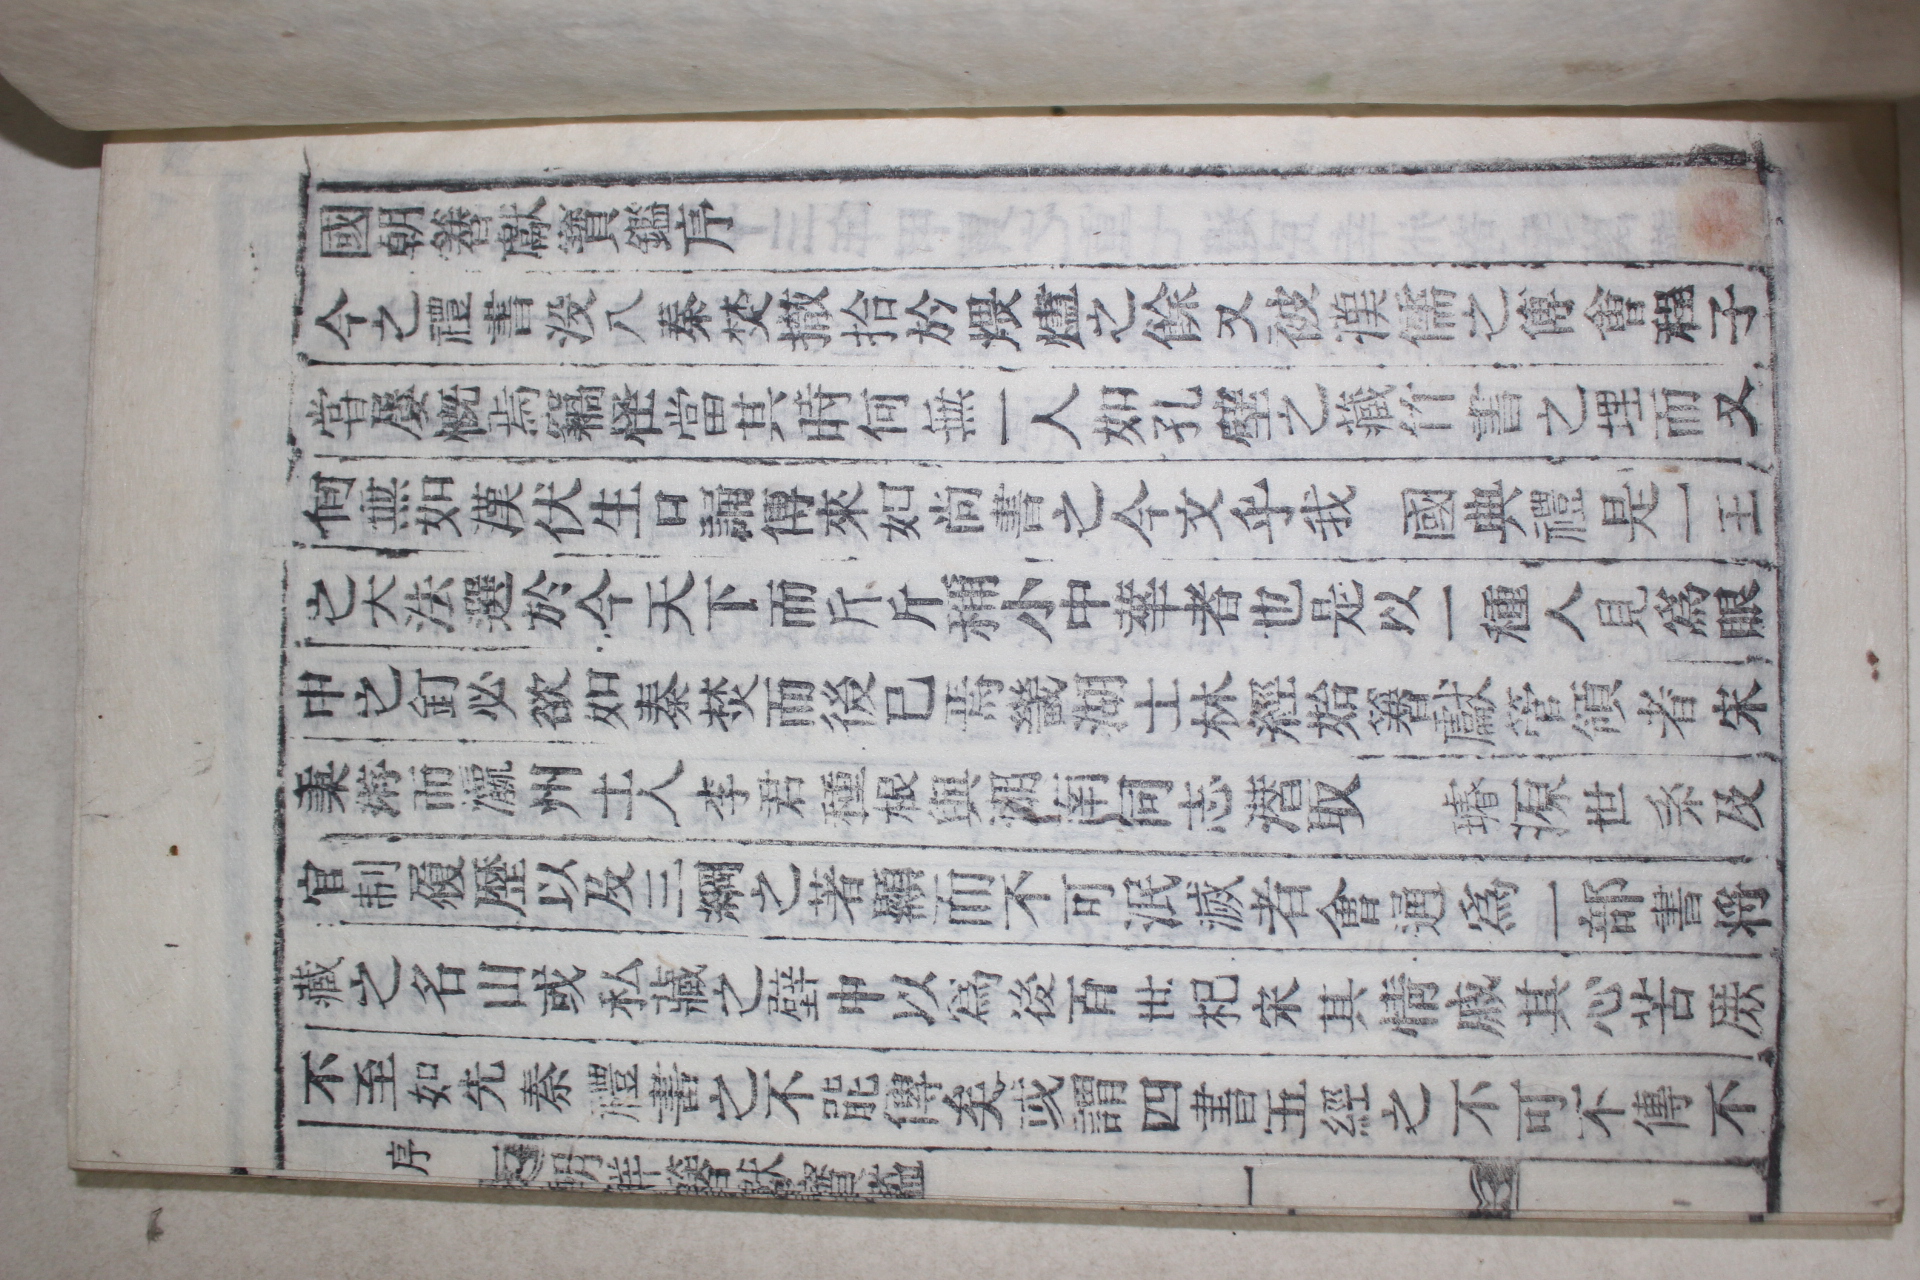 國朝簪獻寶鑑序
今之禮書没入秦焚撤拾於煨爐之餘又被漢儒之傅會程子
嘗屢慨焉竊怪當其時何無一人如孔壁之藏竹書之埋而又
何無如漢伏生口誦傳來如尚書之今文乎我 國典禮是一王
之大法選於今天下而斤斤稱小中華者也是以一種人見爲眼
中之釘必欲如秦焚而後已焉畿湖士林經始簪獻管領者宋
秉游而瀛州士人李君種根與湖南同志潛取 璿源世系及
官制履歷以及三綱之著顯而不可泯滅者會通爲一部書將
藏之名山或私藏之壁中以爲後百世杞宋其情慽其心苦厥
不至如先秦禮書之不能傳矣或謂四書五經之不可不傳不
序 朝鮮簪獻寶鑑 一